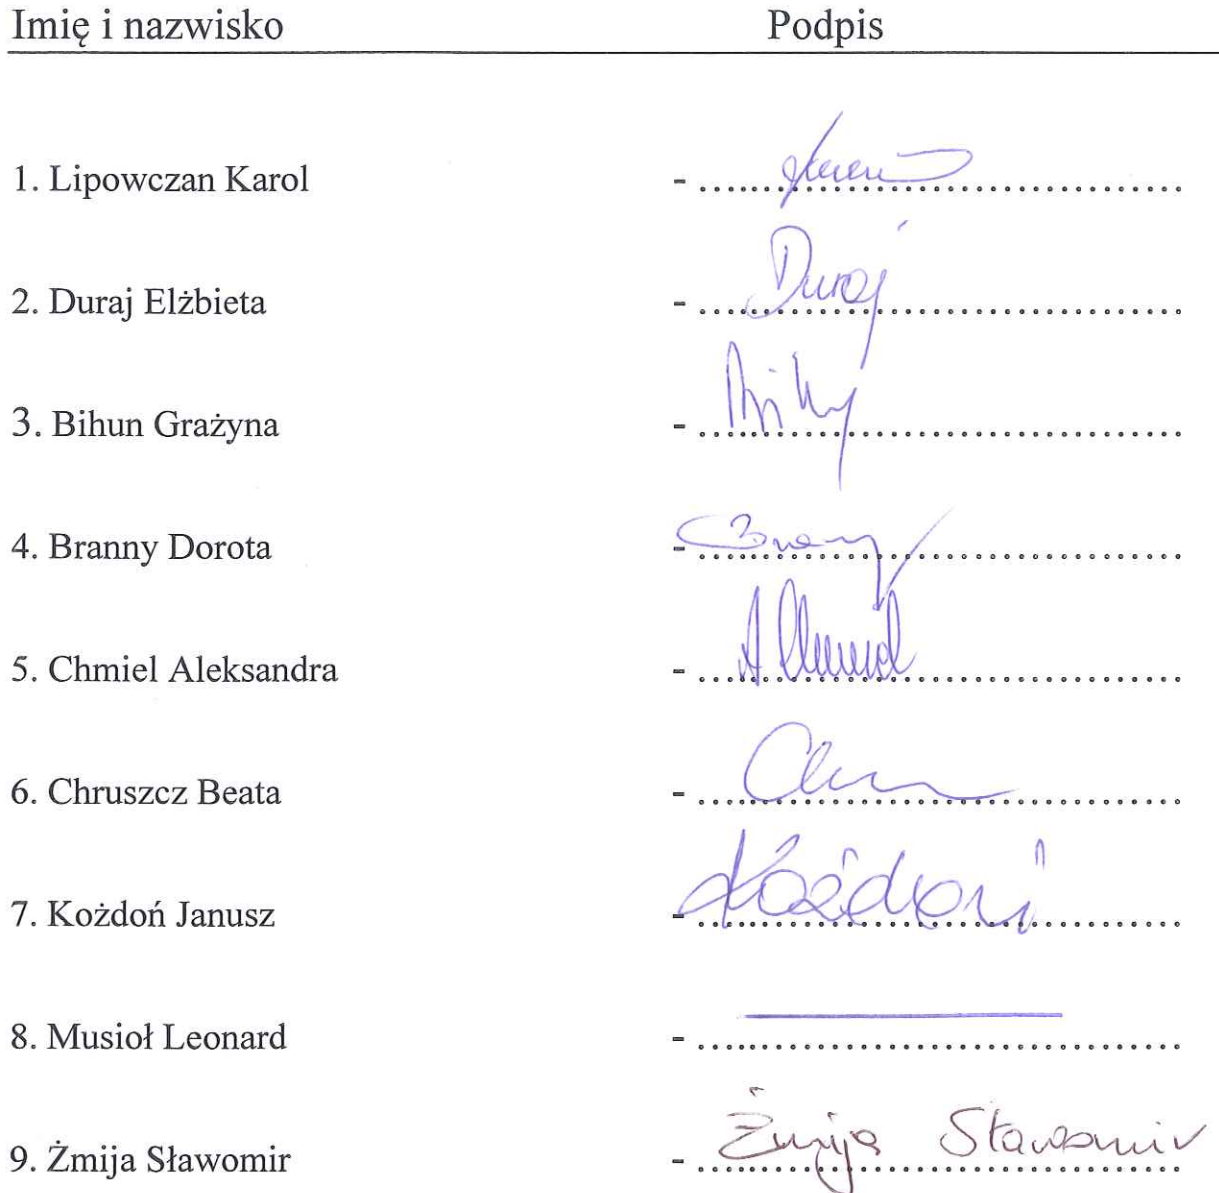 Imię i nazwisko Podpis
1. Lipowczan Karol - ........................................
2. Duraj Elżbieta - Duraj
3. Bihun Grażyna - ........................................
4. Branny Dorota - ........................................
5. Chmiel Aleksandra - A Chmiel
6. Chruszcz Beata - ........................................
7. Kożdoń Janusz - Kożdoń
8. Musioł Leonard - ........................................
9. Żmija Sławomir - Żmija Sławomir